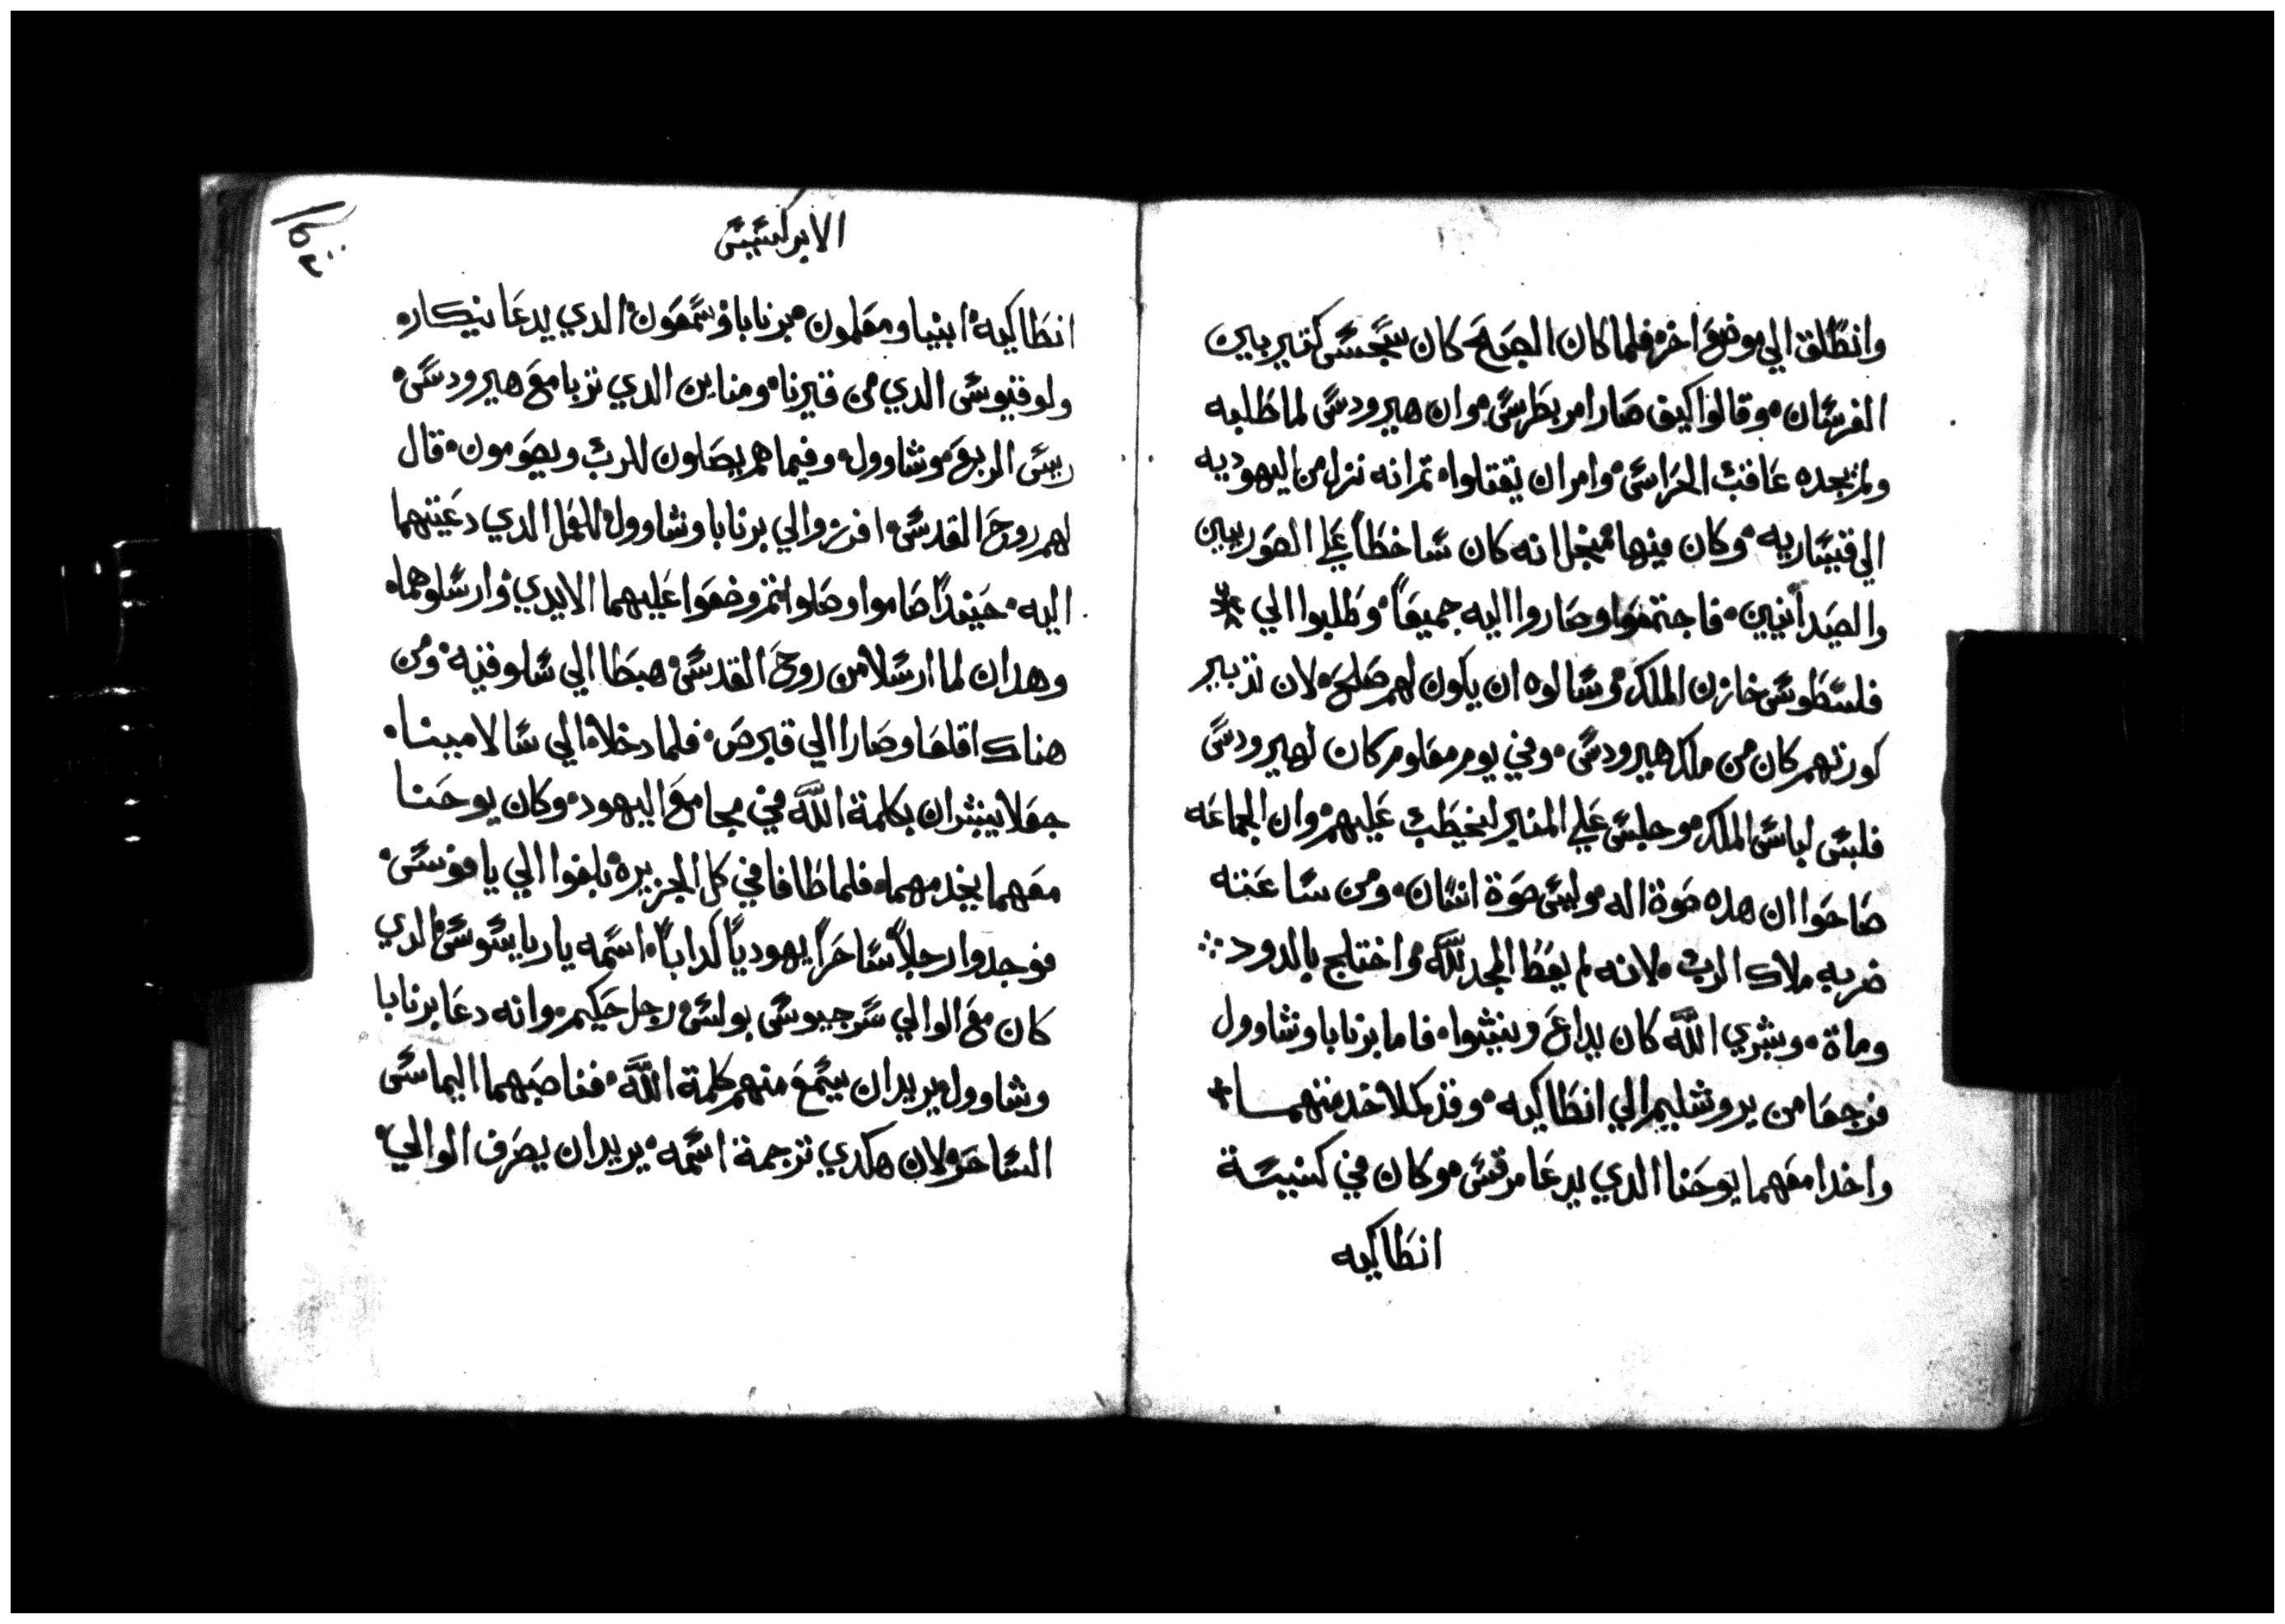 وانطلق الي موضع اخر، فلما كان الصبح كان سجس كتير بين
الفرسان، وقالوا كيف صار امر بطرس، وان هيرودس لما طلبه
ولم يجده عاقب الحراس، وامر ان يقتلوا، تم انه نزل من اليهوديه
الي قيساريه، وكان فيها، منجل انه كان ساخطاً علي الصوريين
والصيدانيين، فاجتمعوا وصاروا اليه جميعاً، وطلبوا الي
فلسطوس خازن الملك، وسالوه ان يكون لهم صلح، لان تدبير
كورتهم كان من ملك هيرودس، وفي يوم معلوم كان لهيرودس
فلبس لباس الملك، وجلس علي المنبر ليخطب عليهم، وان الجماعه
صاحوا ان هده صوة اله، وليس صوة انسان، ومن ساعته
ضربه ملاك الرب، لانه لم يعط المجد لله، واختلج بالدود ⁘
وماة، وبشري الله كان يداع وينبثوا، فاما برنابا وشاوول
فرجعا من يروشليم الي انطاكيه، وقد كملا خدمتهما +
واخدا معهما يوحنا الدي يدعا مرقس، وكان في كنيسة
انطاكيه
الابركسيس
انطاكيه، انبيا ومعلمون، برنابا، وسمعون، الدي يدعا نيكار،
ولوقيوس الدي من قيرنا، ومناين الدي تربا مع هيرودس،
ريس الربع، وشاوول، وفيما هم يصلون للرب ويصومون، قال
لهم روح القدس، افرزوا لي برنابا وشاوول، للعمل الدي دعيتهما
اليه، حينداً صاموا وصلوا، تم وضعوا عليهما الايدي، وارسلوهما،
وهدان لما ارسلا من روح القدس، هبطا الي سلوقيه، ومن
هناك اقلعا وصارا الي قبرص، فلما دخلا، الي سالامينا،
جعلا يبشران بكلمة الله في مجامع اليهود، وكان يوحنا
معهما يخدمهما، فلما طافا في كل الجزيره، بلغوا الي يافوس،
فوجدوا رجلاً ساحراً يهودياً كداباً، اسمه ياريايسوس، الدي
كان مع الوالي سرجيوس بولس، رجل حكيم، وانه دعا برنابا
وشاوول، يريد ان يسمع منهم كلمة الله، فناصبهما اليماس
الساحر، لان هكدي ترجمة اسمه، يريد ان يصرف الوالي،